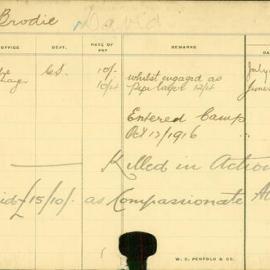 Brodie David
OFFICE DEPT. RATE OF PAY REMARK
C.S. 10/- whilst engaged as July
10/4 Pipe layer 12/4 June
Entered Camp
Oct 12/1916 "
Killed in Action
£15/10/- as Compassionate Al
W. C. PENFOLD & CO.